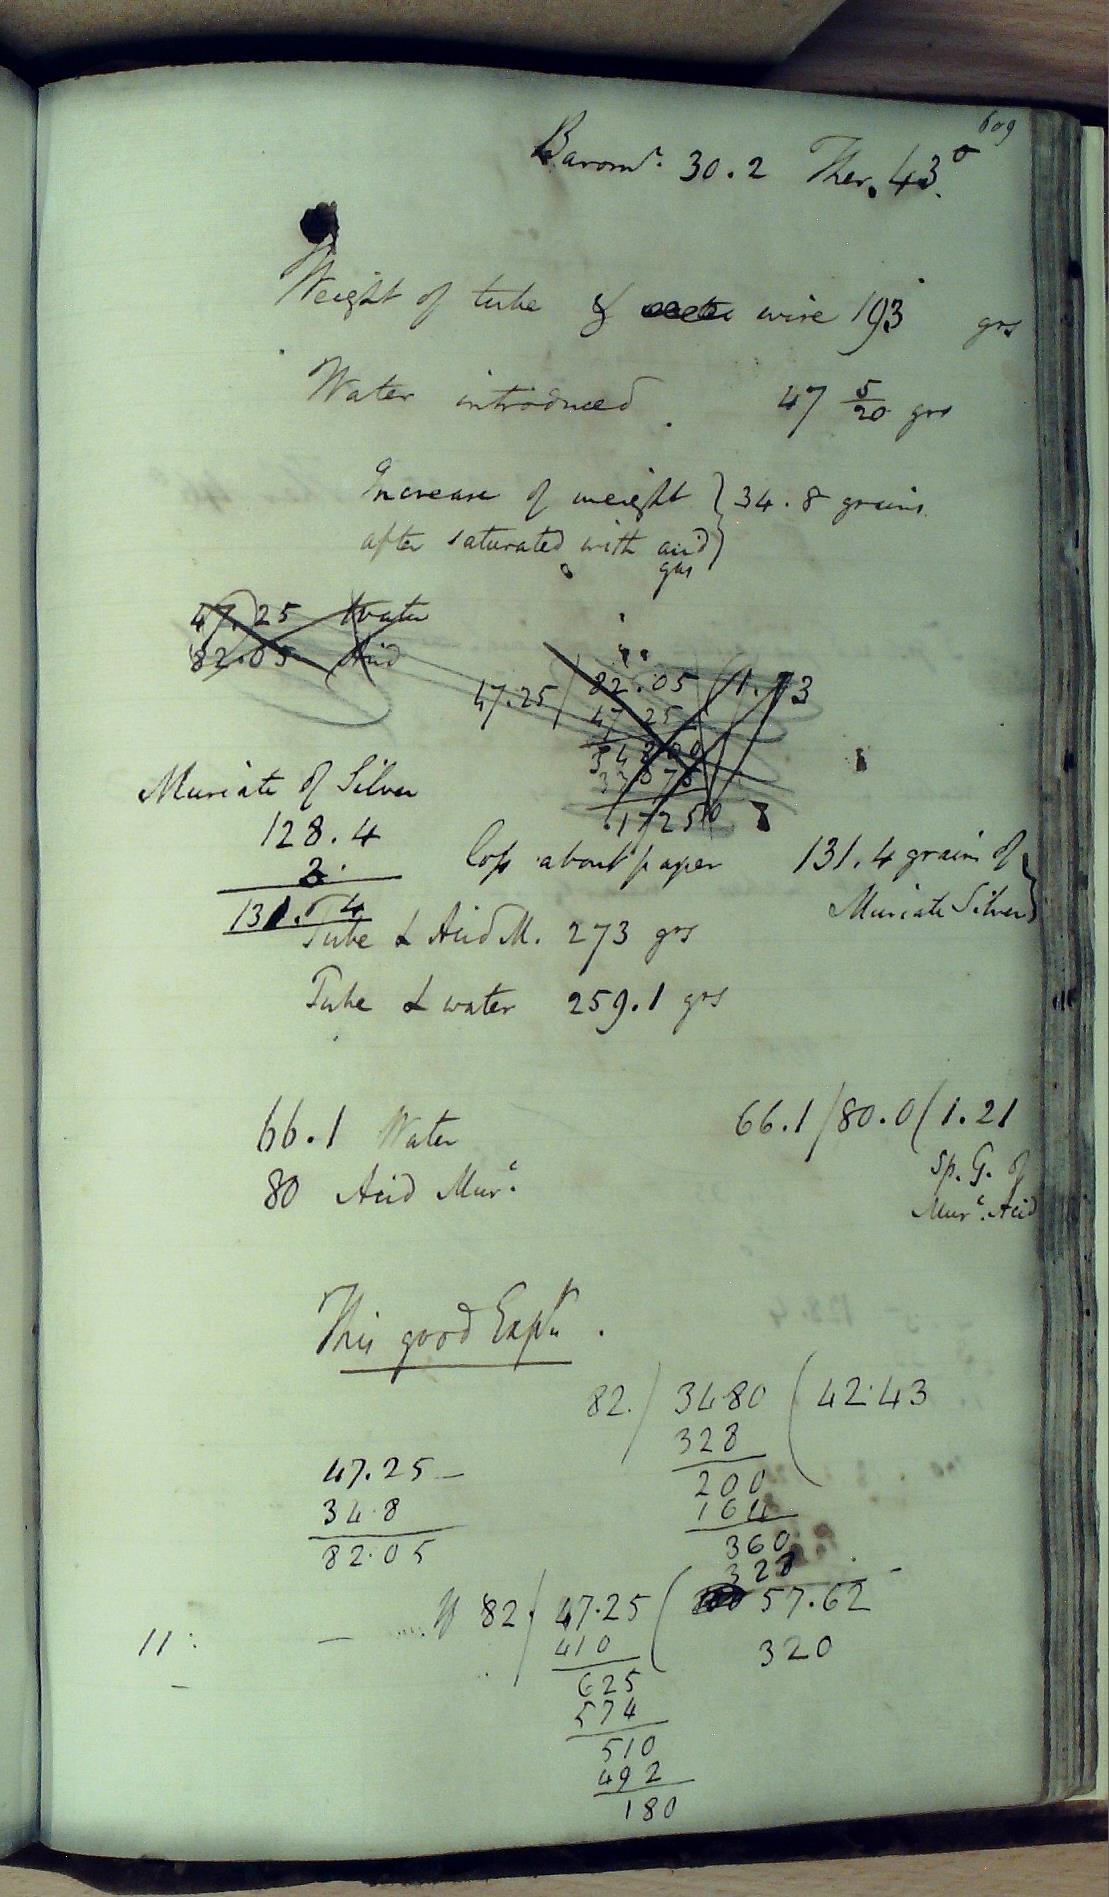 609
Baromr. 30.2 Ther. 43°
Weight of tube & wire 193 grs
Water introduced 47 5/20 grs
Increase of weight } 34.8 grains
after saturated with acid }
gas
47.25 Water
82.05 Acid
47.25 / 82.05 ( 1.73
47 25
34800
33075
1725 0
Muriate of Silver
128.4
3.
131.4
loss about paper 131.4 grains of }
Muriate Silver }
Tube & Acid M. 273 grs
Tube & water 259.1 grs
66.1 Water 66.1 / 80.0 ( 1.21
80 Acid Murc. Sp. G. of
Murc. Acid
This good Exptn.
82. / 3480 ( 42.43
328
200
164
360
328
47.25
34.8
82.05
82 / 47.25 ( 57.62
410 320
625
574
510
492
180
11: